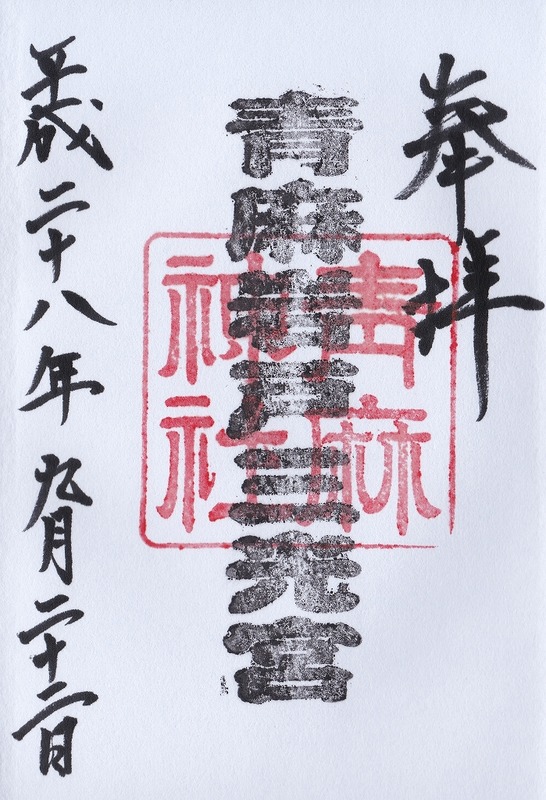 奉拝
青麻岩戸三光宮
青麻
神社
平成二十八年 九月二十二日